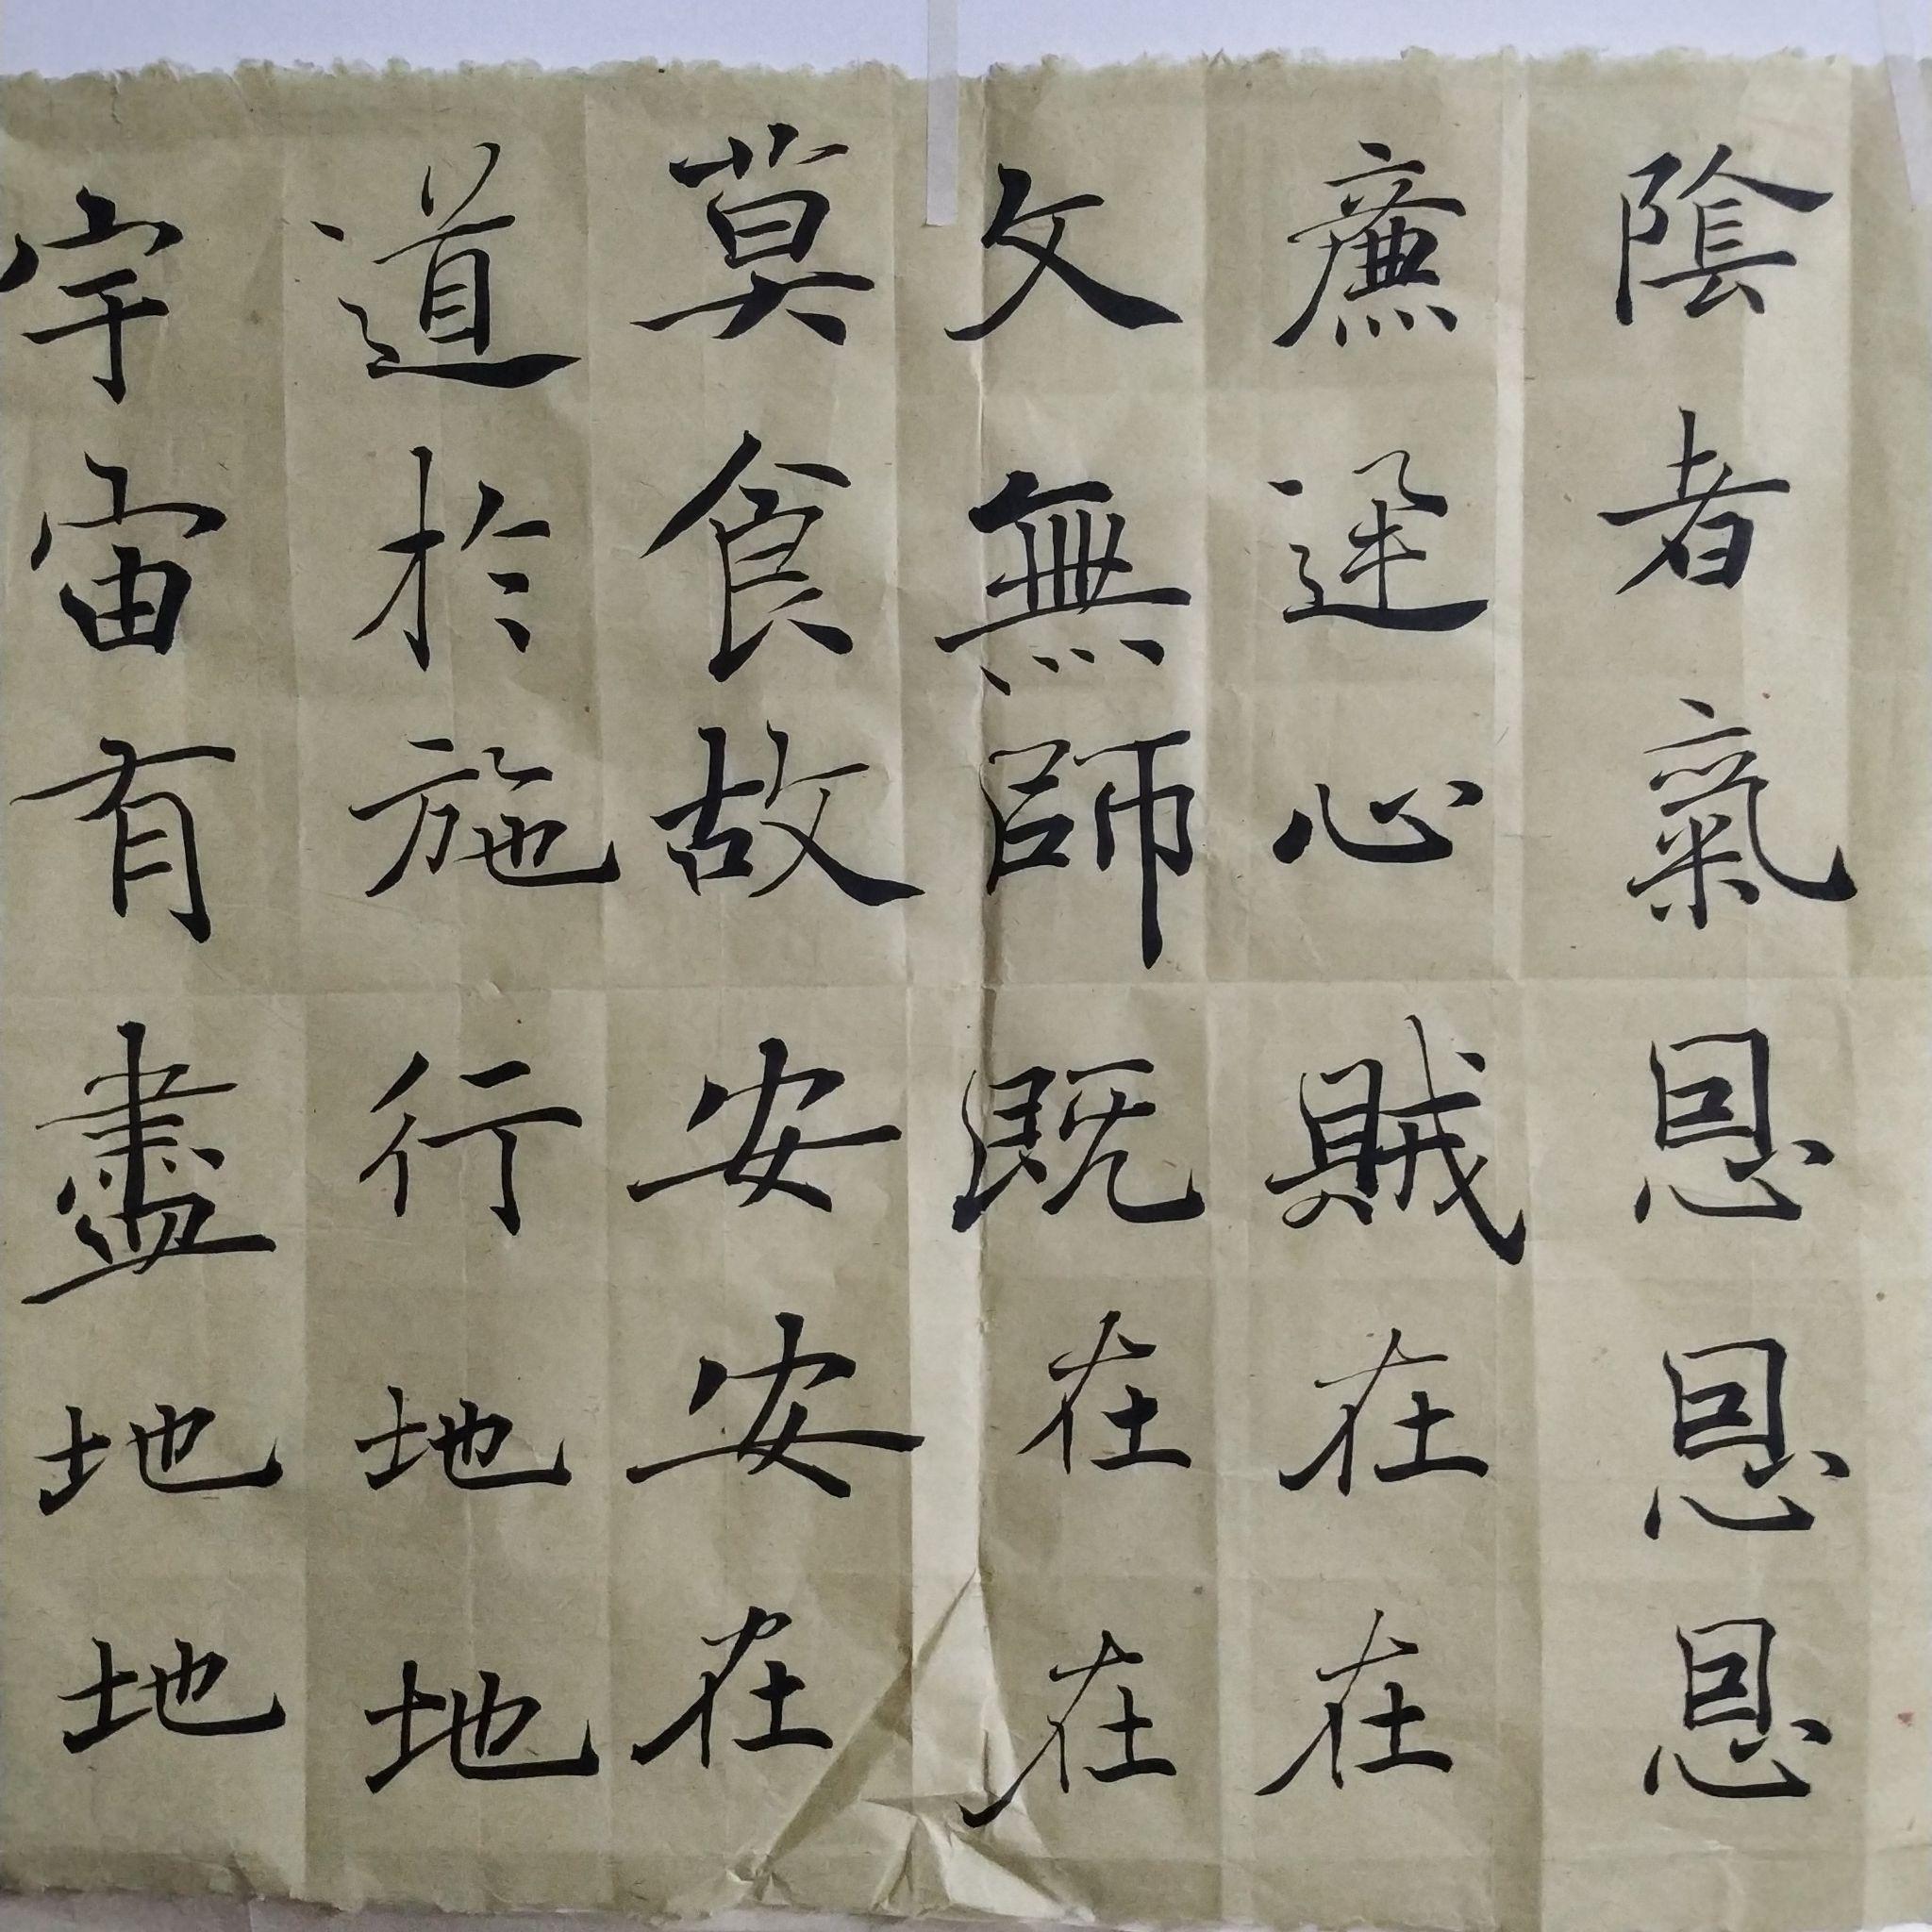 陰者氣恩恩恩
廉逆心賊在在
文無師既在在
莫食故安安在
道於施行地地
宇宙有盡地地